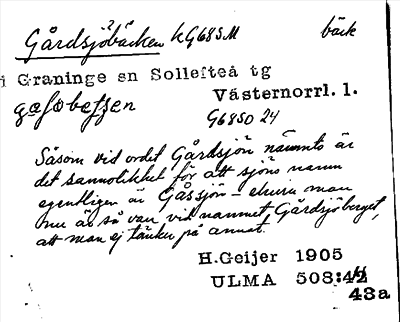 Gårdsjöbäcken kG685M bäck
i Graninge sn Sollefteå tg
Västernorrl. l.
G6850 24
Såsom vid ordet Gårdsjön nämnts är
det sannolikhet för att sjöns namn
egentligen är Gåssjön – ehuru man
nu är så van vid namnet Gårdsjöberget,
att man ej tänker på annat.
H.Geijer 1905
ULMA 508:
43a